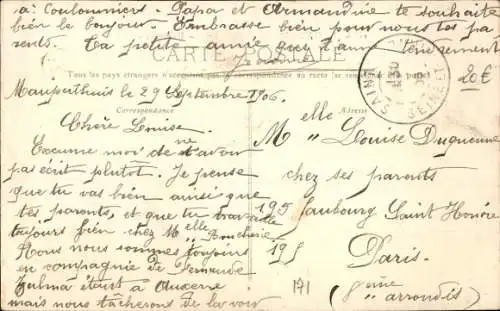 à Coulommiers. Papa et Armandine te souhaite
bien le bonjour. Embrasse bien pour nous tes pa
rents. Ta petite amie qui t'aime tendrement
CARTE POSTALE
Tous les pays étrangers n'acceptent pas la correspondance au recto (se renseigner à la poste)
20€
Mauperthuis le 29 Septembre 1906.
Correspondance
Adresse
Chère Louise.
Excuse moi de ne t'avoir
pas écrit plutôt. Je pense
que tu vas bien ainsi que
tes parents, et que tu travaille
toujours bien chez Melle Boucherie
Nous nous sommes toujours
en compagnie de
Zulma étant à Auxerre
mais nous tâcherons de la voir
Melle Louise Duquenne
chez ses parents
195 Faubourg Saint Honoré
195
Paris.
(8ième arrondis)
171
SAINT
SEINE ET